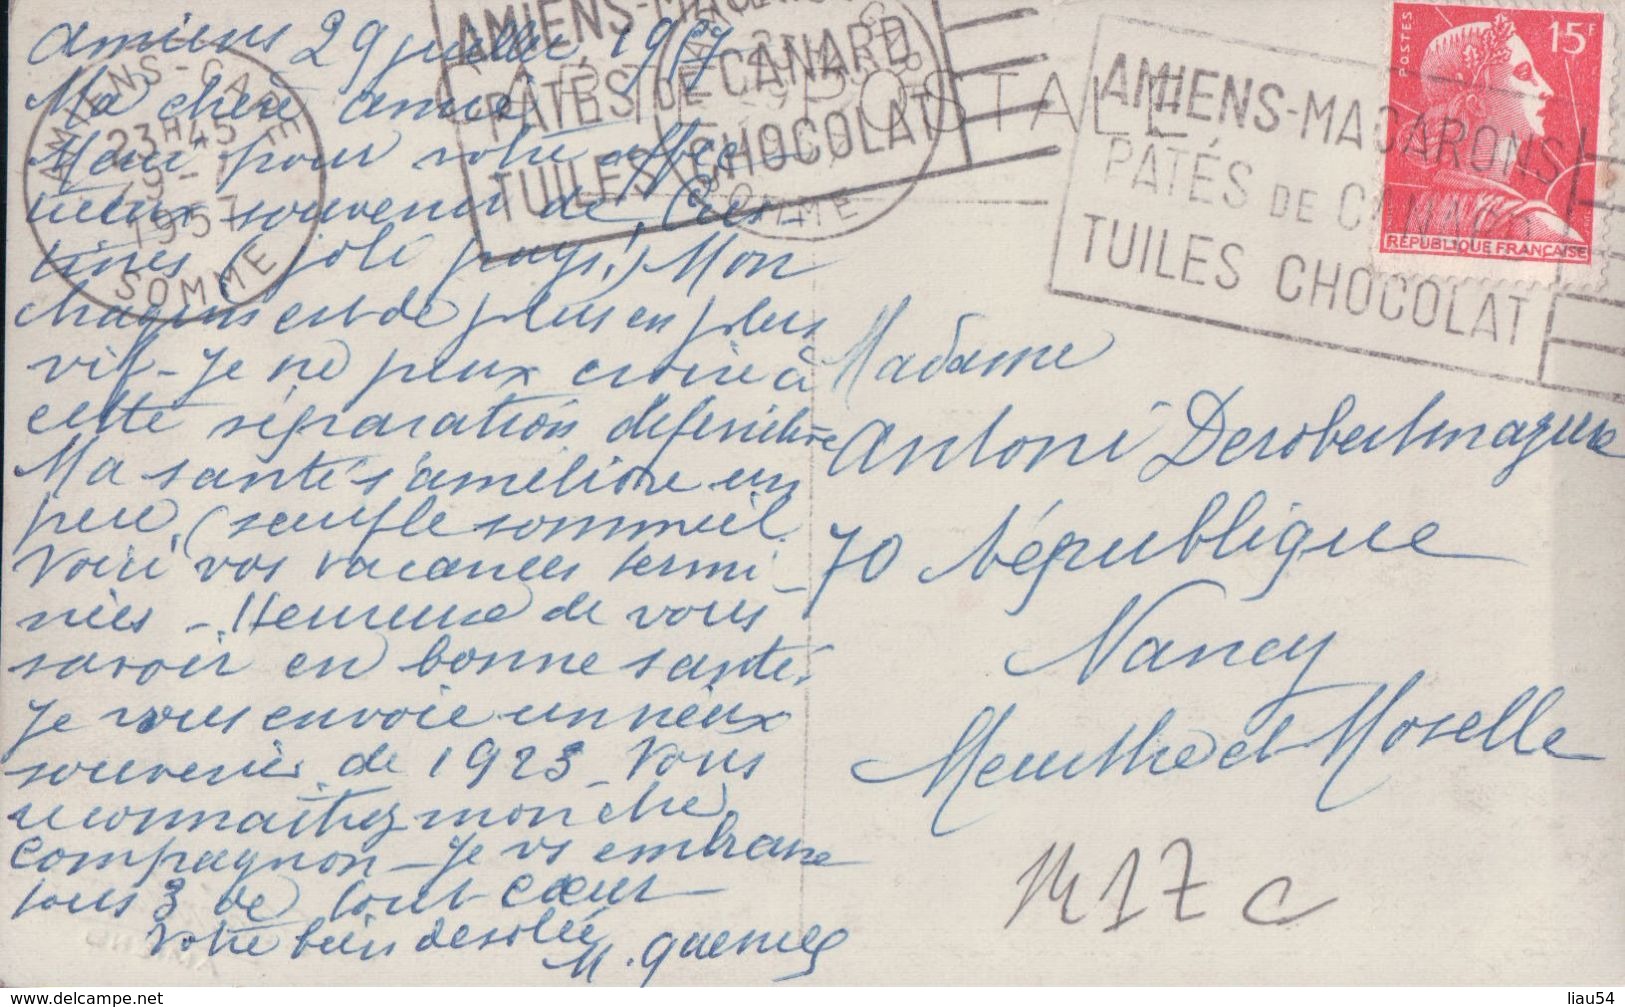 Amiens 29 juillet 1957
Ma chère amie
Merci pour votre affec-
tueux souvenir de
tines (joli pays!) Mon
chagrin est de plus en plus
vif - Je ne peux croire à
cette séparation définitive
Ma santé s'améliore un
peu, (seuf le sommeil.
Voici vos vacances termi-
nées - Heureuse de vous
savoir en bonne santé.
Je vous envoie un vieux
souvenir de 1923 - Vous
reconnaitrez mon cher
compagnon - Je vs embrasse
tous 3 de tout cœur
Votre bien désolée
CARTE POSTALE
AMIENS-GARE
23H45
29-7
1957
SOMME
AMIENS-MACARONS
PÂTÉS DE CANARD
TUILES CHOCOLAT
SOMME
AMIENS-MACARONS
PÂTÉS DE CANARD
TUILES CHOCOLAT
POSTES
15F
RÉPUBLIQUE FRANÇAISE
Madame
Antoni Derobertmazure
70 République
Nancy
Meurthe et Moselle
M17c
liau54
www.delcampe.net